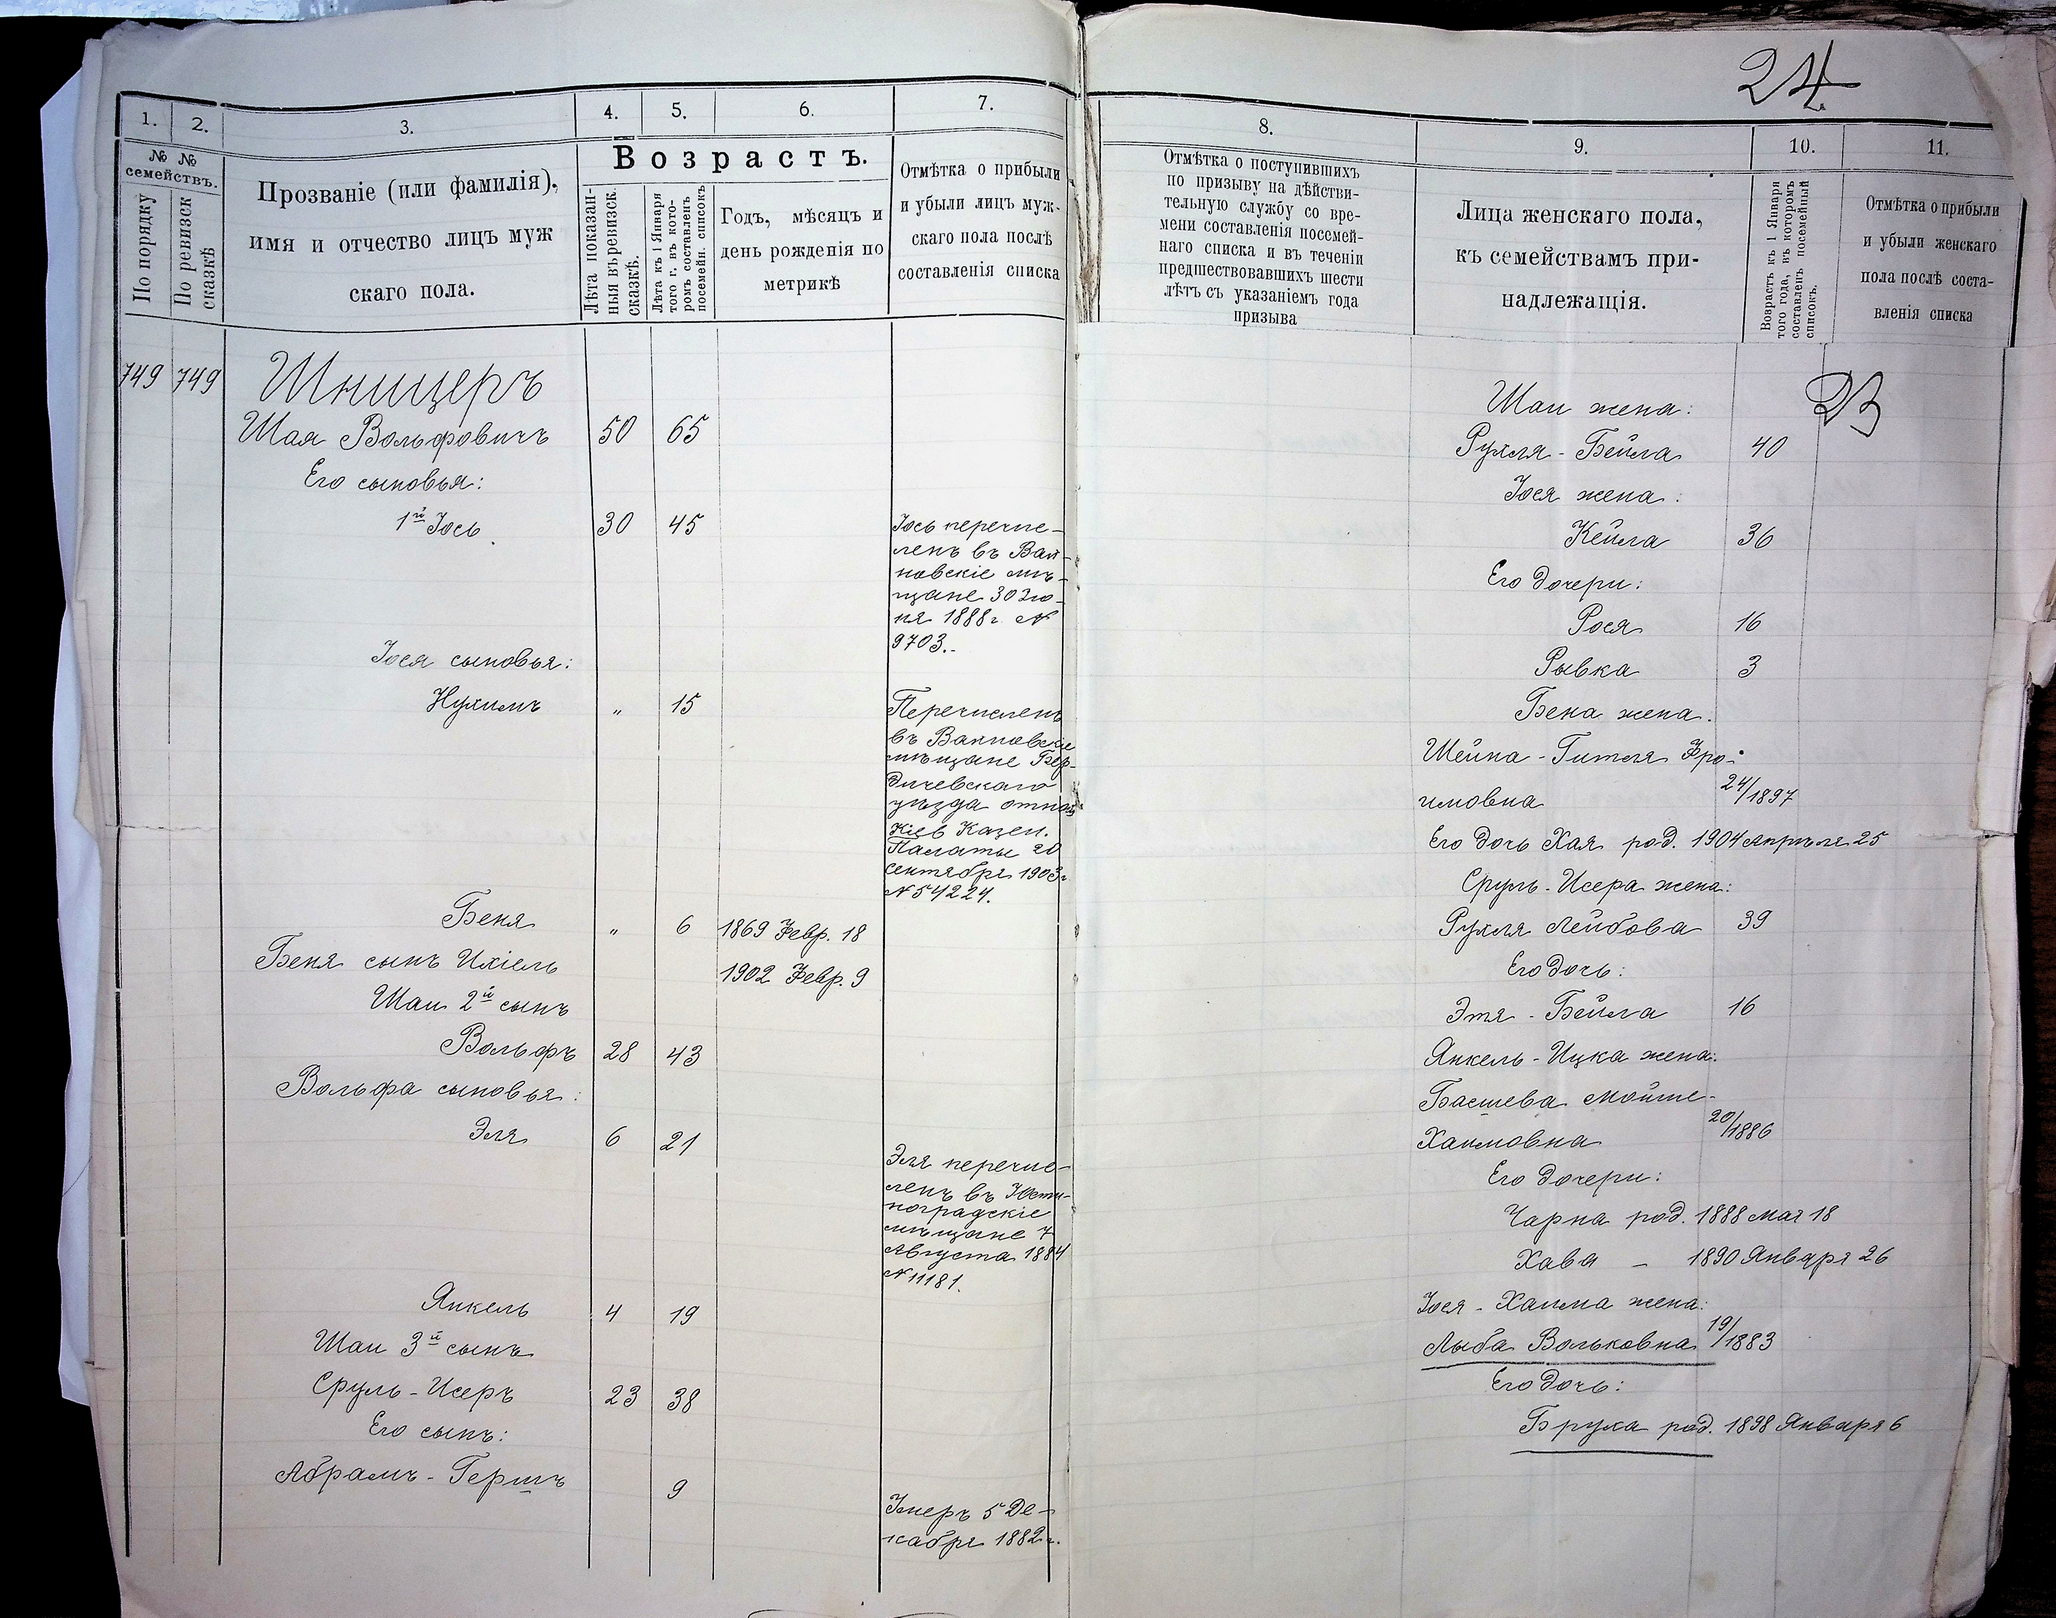 24
1.
2.
3.
4.
5.
6.
7.
№ №
семействъ.
По порядку
По ревизск
сказкѣ
Прозваніе (или фамилія),
имя и отчество лицъ муж
скаго пола.
Возрастъ.
Лѣта показан-
ныя въ ревизск.
сказкѣ.
Лѣта къ 1 Января
того г. въ кото-
ромъ составленъ
посемейн. списокъ
Годъ, мѣсяцъ и
день рожденія по
метрикѣ
Отмѣтка о прибыли
и убыли лицъ муж-
скаго пола послѣ
составленія списка
749 749 Шницеръ
Шая Вольфовичъ 50 65
Его сыновья:
1й Іось 30 45
Іось перечис-
ленъ въ Вах-
новскіе мѣ-
щане 30 Ію-
ня 1888 г N
9703.
Іося сыновья:
Нухимъ " 15
Перечисленъ
въ Вахновскіе
мѣщане Бер-
дичевскаго
уѣзда отнош
Кіев Казен.
Палаты 20
Сентября 1903 г
N 54224.
Беня " 6 1869 Февр. 18
Беня сынъ Ихіель 1902 Февр. 9
Шаи 2й сынъ
Вольфъ 28 43
Вольфа сыновья:
Эля 6 21
Эля перечис-
ленъ въ Юсти-
ноградскіе
мѣщане 7
Августа 1884
N 11181.
Янкель 4 19
Шаи 3й сынъ
Сруль-Исеръ 23 38
Его сынъ:
Абрамъ-Гершъ 9
Умеръ 5 Де-
кабря 1882 г.
8.
9.
10.
11.
Отмѣтка о поступившихъ
по призыву на дѣйстви-
тельную службу со вре-
мени составленія посемей-
наго списка и въ теченіи
предшествовавшихъ шести
лѣтъ съ указаніемъ года
призыва
Лица женскаго пола,
къ семействамъ при-
надлежащія.
Возрастъ къ 1 Января
того года, въ которомъ
составленъ посемейный
списокъ.
Отмѣтка о прибыли
и убыли женскаго
пола послѣ соста-
вленія списка
23
Шаи жена:
Рухля-Бейла 40
Іося жена:
Кейла 36
Его дочери:
Рося 16
Рывка 3
Бена жена:
Шейна-Гитля Фро-
имовна 24/1897
Его дочь Хая род. 1904 Апрѣля 25
Сруль-Исера жена:
Рухля Лейбова 39
Его дочь:
Этя-Бейла 16
Янкель-Ицка жена:
Басшева Мойше-
Хаимовна 20/1886
Его дочери:
Чарна род. 1888 Мая 18
Хава — 1890 Января 26
Іося-Хаима жена:
Лыба Вольковна 19/1883
Его дочь:
Бруха род. 1898 Января 6